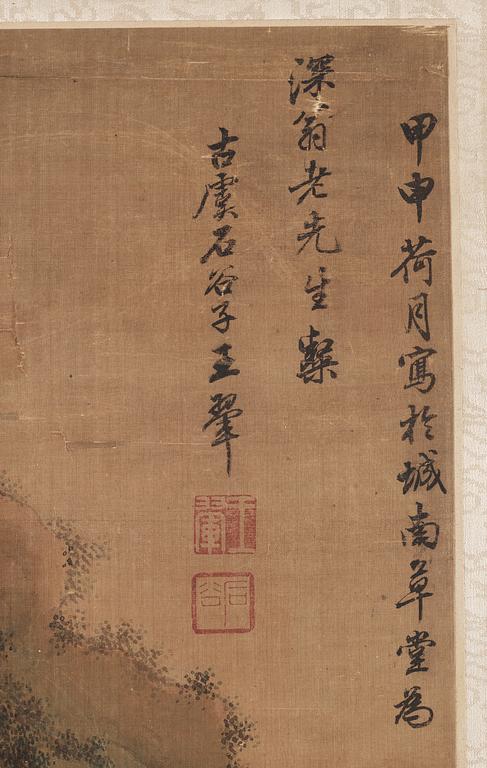 甲申荷月寫於城南草堂為
深翁老先生粲
古虞石谷子王翬
王翬
石谷